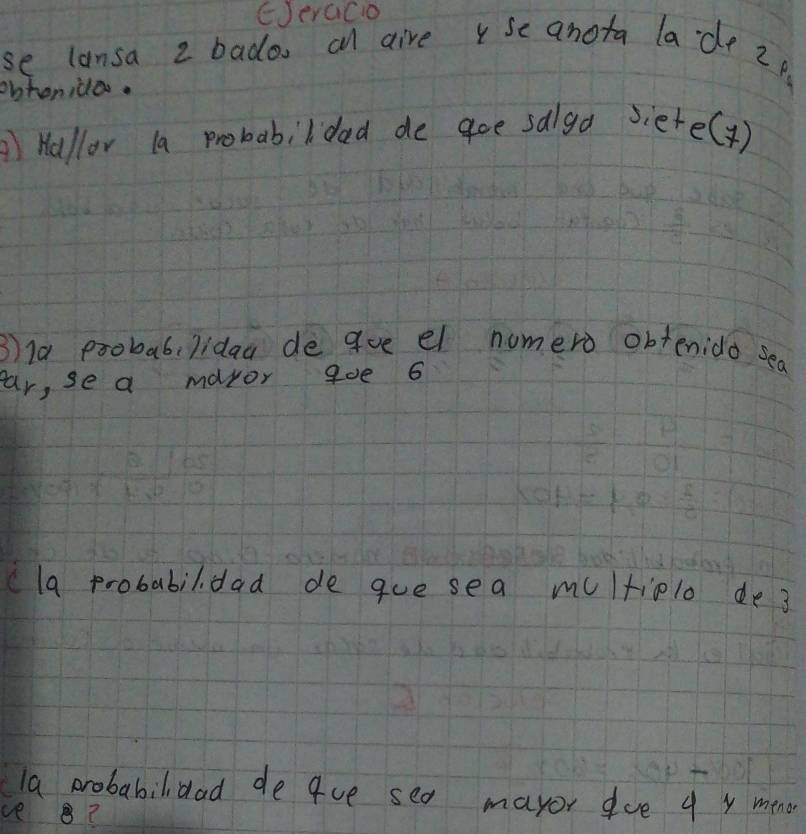 Ejeracio
se lansa 2 bados al aire y se anota la de 2
obtenida.
Hallar la probabilidad de que salga siete (7)
3) la probabilidad de que el numero obtenido sea
par, se a mayor que 6
c la probabilidad de que sea multiplo de 3
la probabilidad de que sea mayor que 4 y menor
que 8?